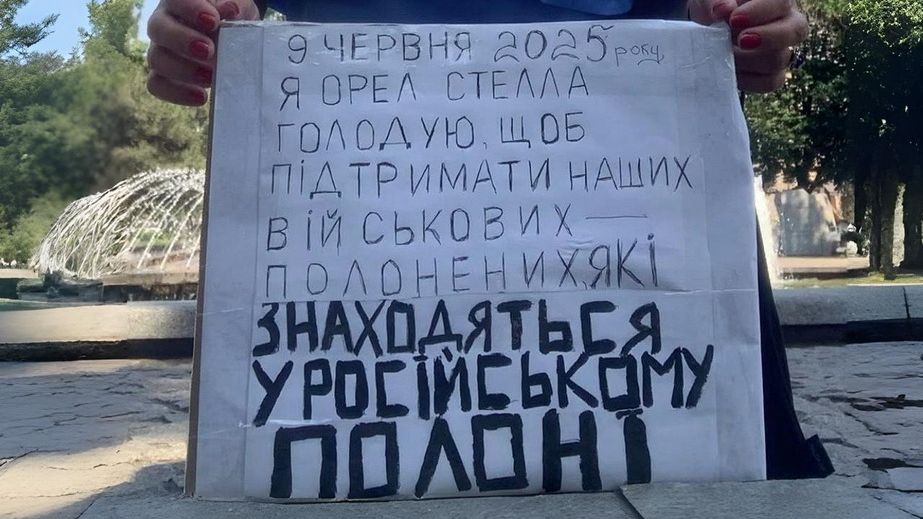 9 ЧЕРВНЯ 2025 року
Я ОРЕЛ СТЕЛЛА
ГОЛОДУЮ, ЩОБ
ПІДТРИМАТИ НАШИХ
ВІЙСЬКОВИХ —
ПОЛОНЕНИХ, ЯКІ
ЗНАХОДЯТЬСЯ
У РОСІЙСЬКОМУ
ПОЛОНІ